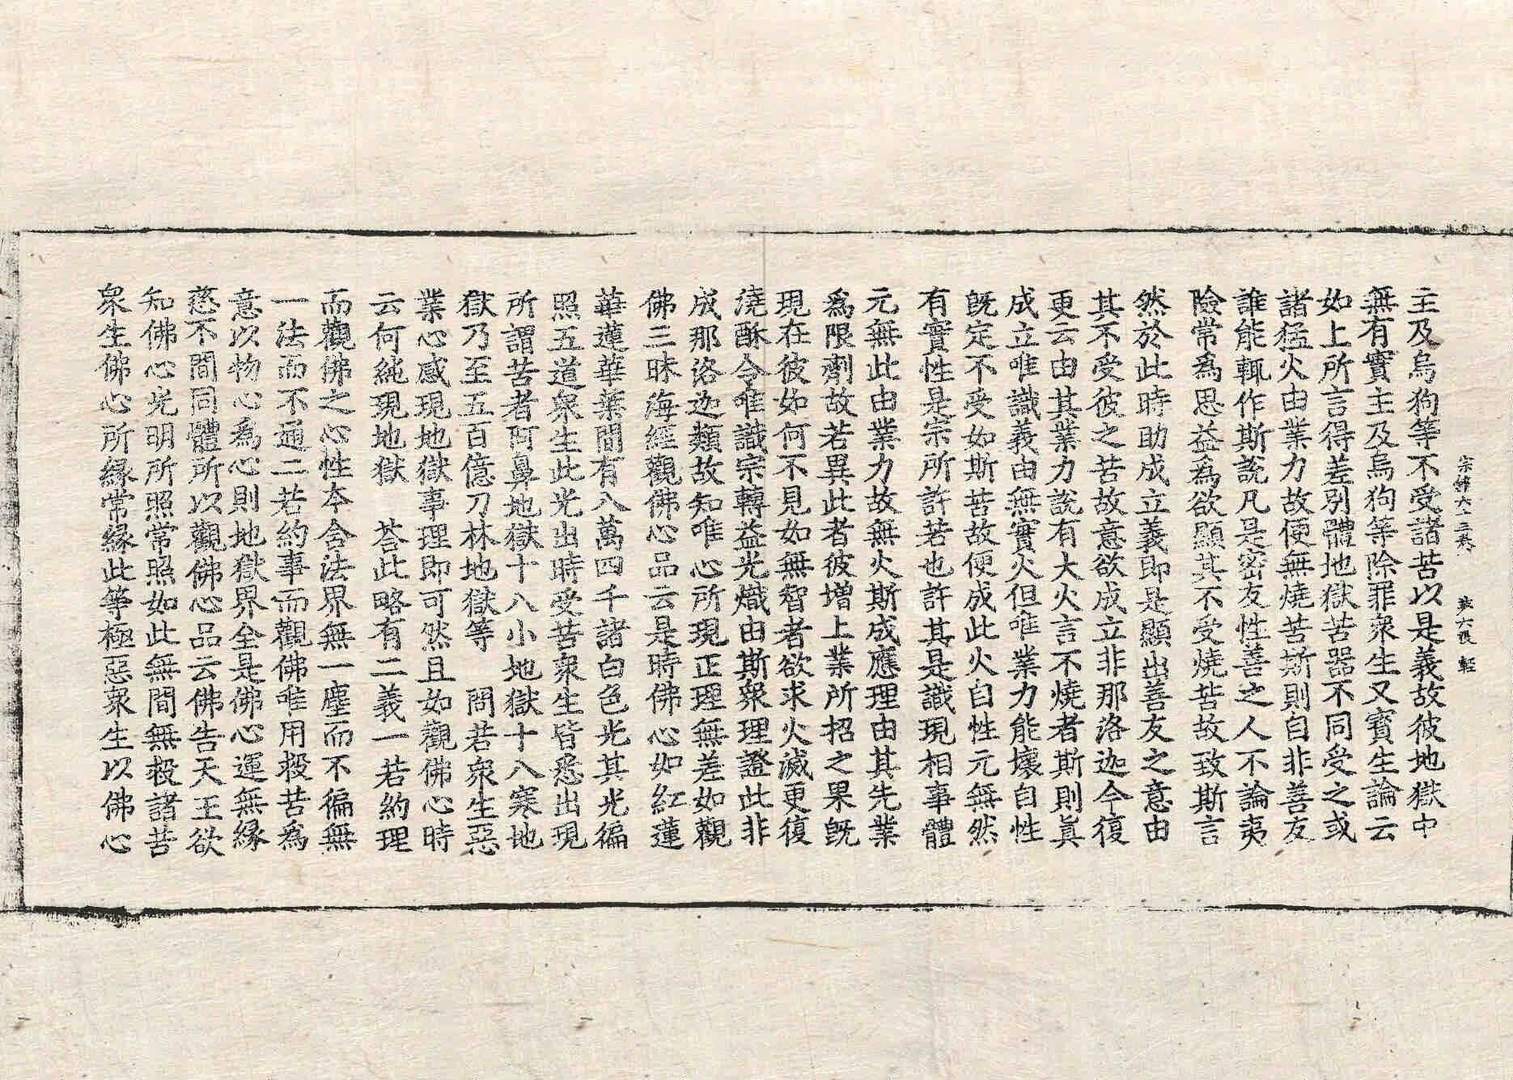 主及烏狗等不受諸苦以是義故彼地獄中
無有實主及烏狗等除罪衆生又寶生論云
如上所言得差別體地獄苦器不同受之或
諸猛火由業力故便無燒苦斯則自非善友
誰能輒作斯說凡是密友性善之人不論夷
險常爲思益為欲顯其不受燒苦故致斯言
然於此時助成立義即是顯出善友之意由
其不受彼之苦故意欲成立非那洛迦今復
更云由其業力說有大火言不燒者斯則眞
成立唯識義由無實火但唯業力能壞自性
旣定不受如斯苦故便成此火自性元無然
有實性是宗所許若也許其是識現相事體
元無此由業力故無火斯成應理由其先業
爲限劑故若異此者彼增上業所招之果旣
現在彼如何不見如無智者欲求火滅更復
澆酥令唯識宗轉益光熾由斯衆理證此非
成那洛迦類故知唯心所現正理無差如觀
佛三昧海經觀佛心品云是時佛心如紅蓮
華蓮華葉間有八萬四千諸白色光其光徧
照五道衆生此光出時受苦衆生皆悉出現
所謂苦者阿鼻地獄十八小地獄十八寒地
獄乃至五百億刀林地獄等　問若衆生惡
業心感現地獄事理即可然且如觀佛心時
云何純現地獄　荅此略有二義一若約理
而觀佛之心性本含法界無一塵而不徧無
一法而不通二若約事而觀佛唯用救苦爲
意以物心爲心則地獄界全是佛心運無緣
慈不間同體所以觀佛心品云佛告天王欲
知佛心光明所照常照如此無間無救諸苦
衆生佛心所緣常緣此等極惡衆生以佛心